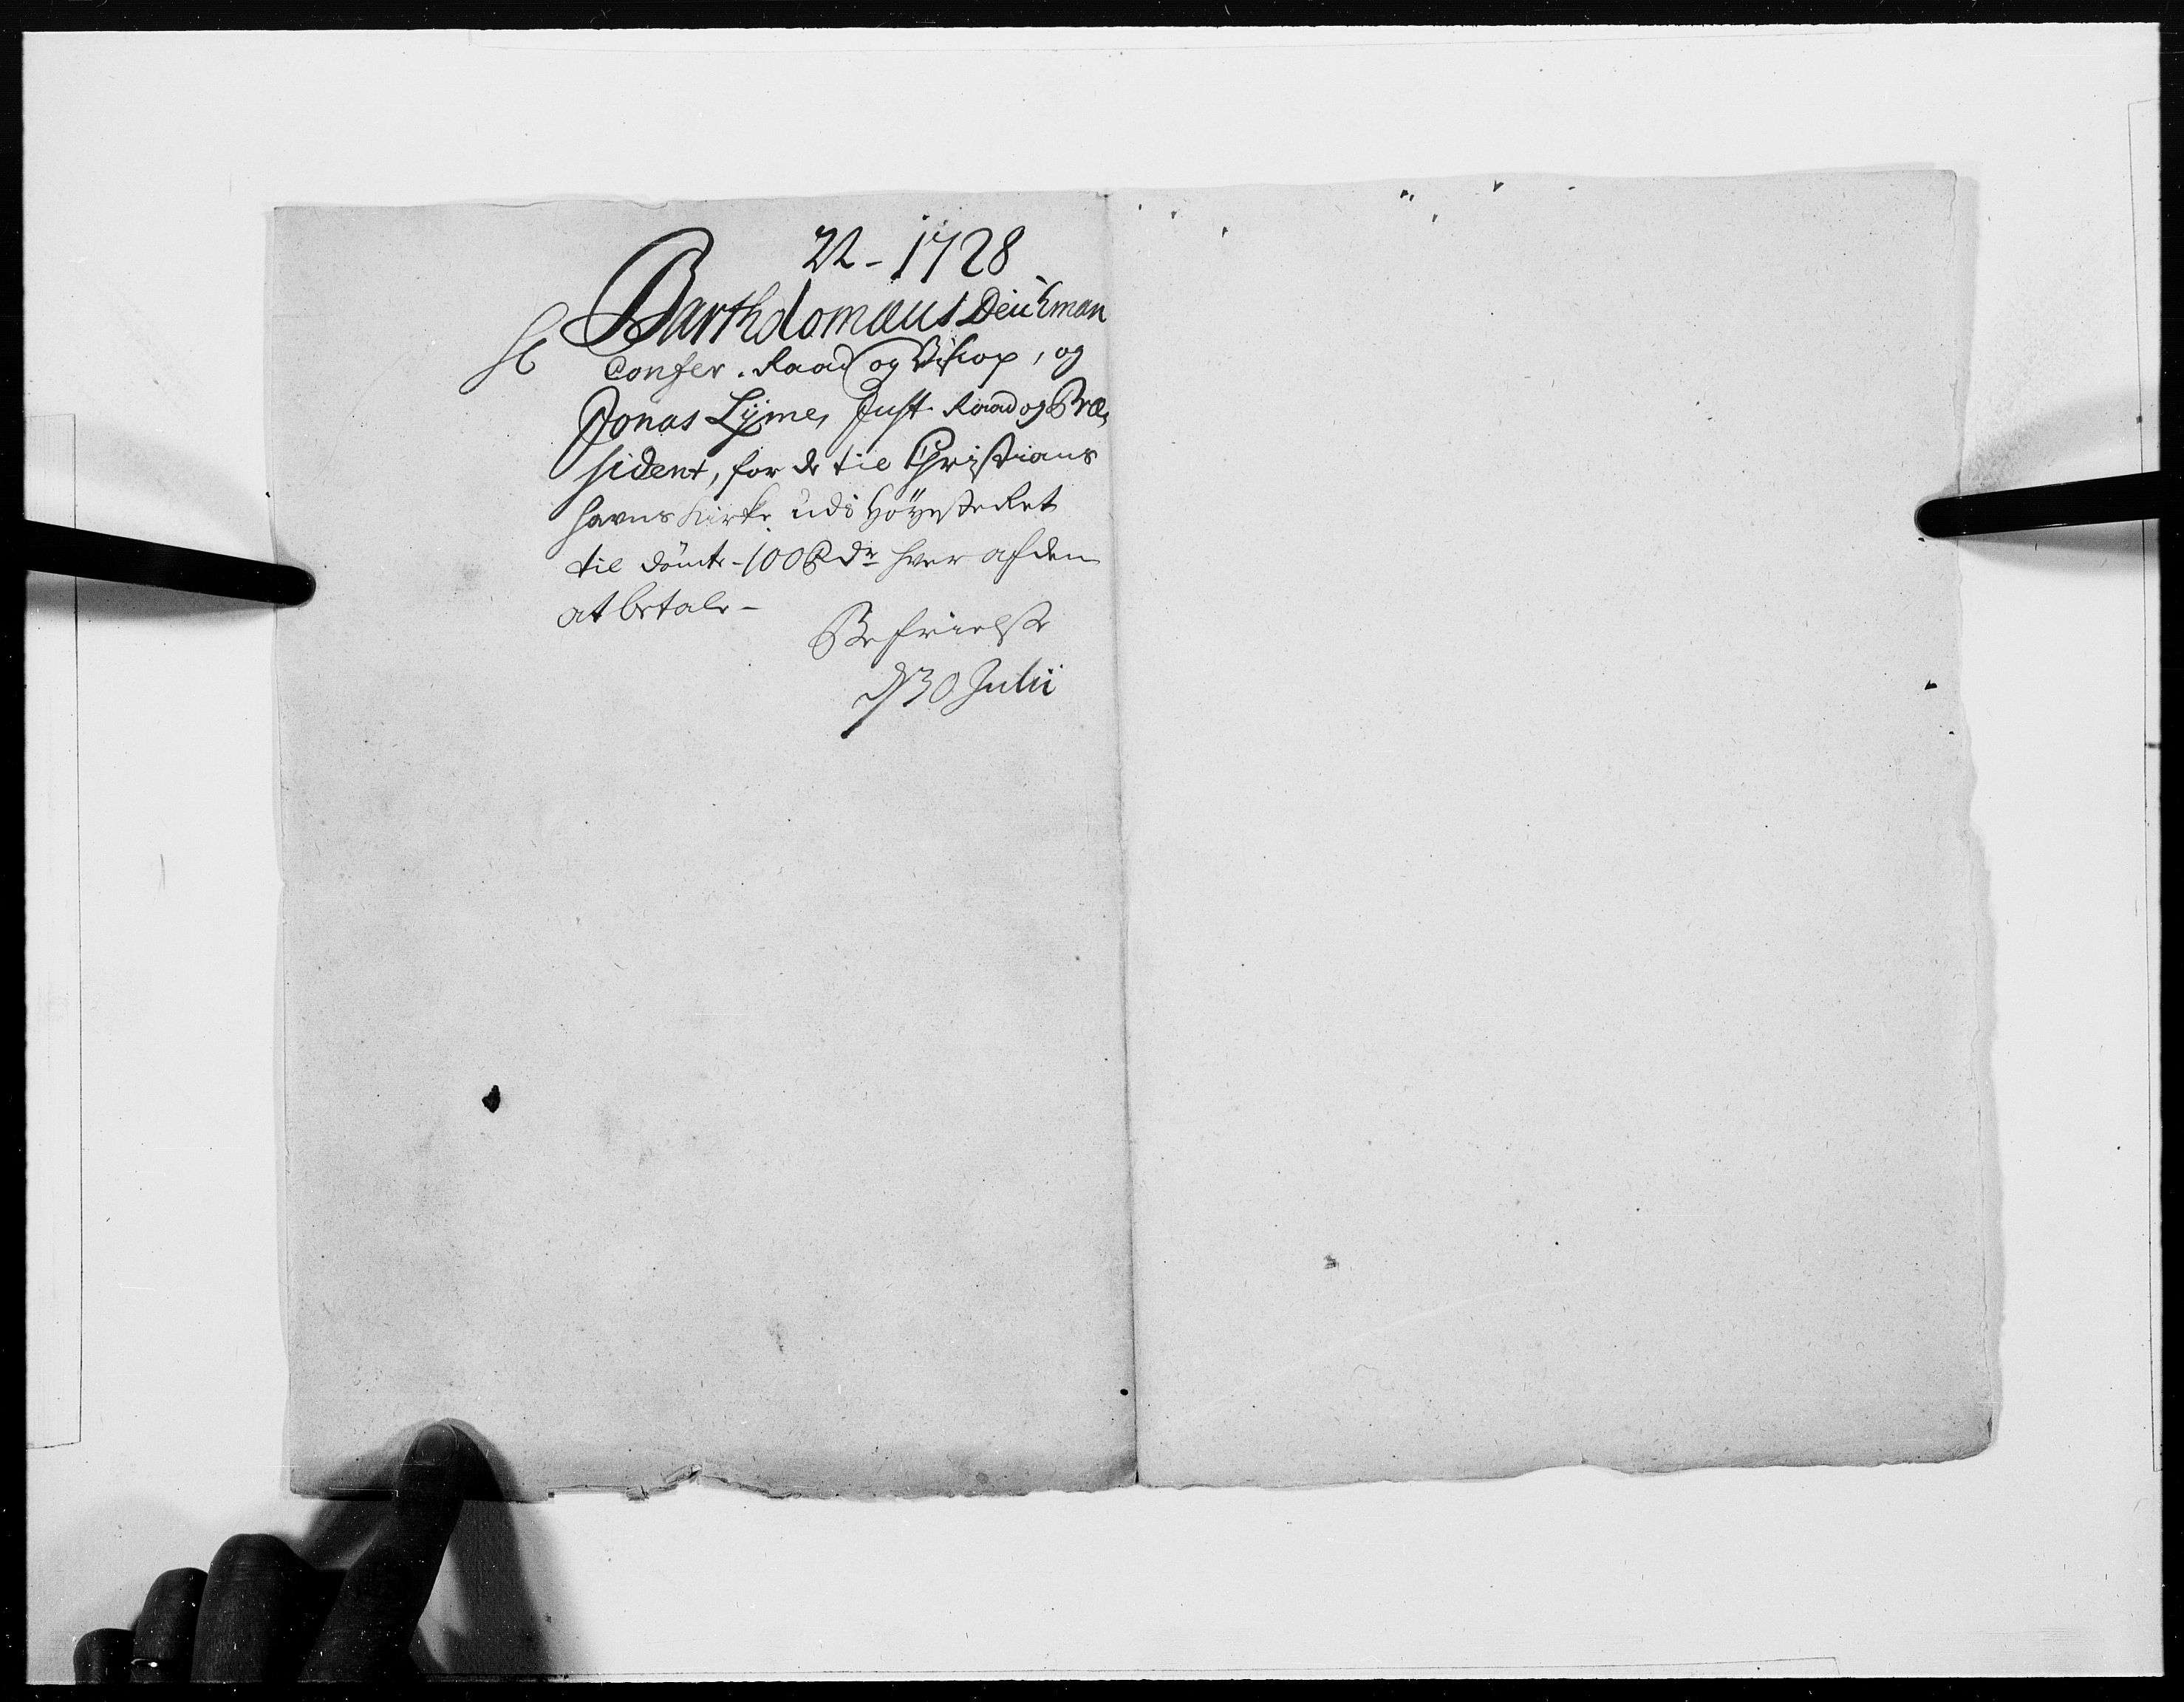 22 - 1728
Bartholomæus Deichman
Confer. Raad og Biscop, og
Jonas Lÿme, Just. Raad og Præ,
sident, for de til Christians
havns Kirke udi Höÿeste Ret
til dömte - 100 Rdr hver af dem
at betale -
Befrielse
d 30 Julii